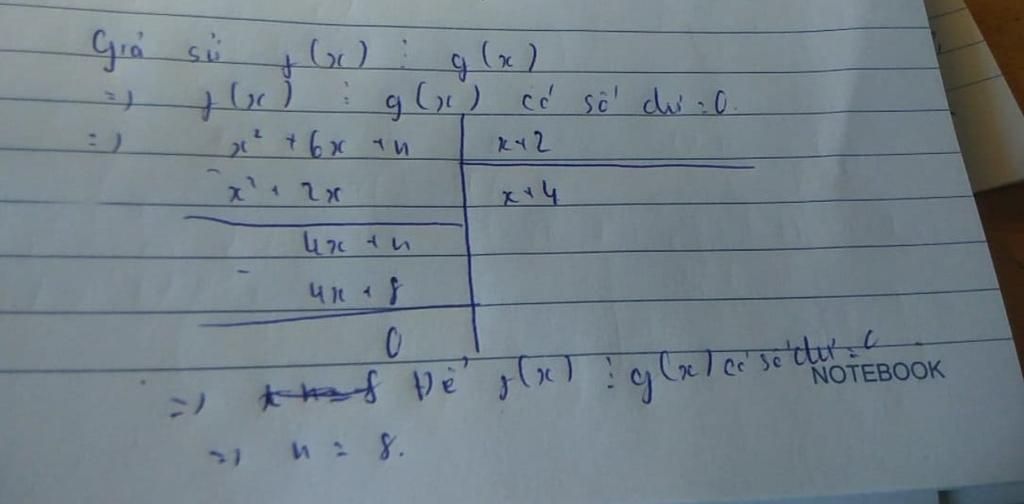 Giả sử f(x) ⋮ g(x)
=> f(x) ⋮ g(x) có số dư = 0.
=> x² + 6x + n | x + 2
- x² + 2x | x + 4
4x + n
- 4x + 8
0
=> Để f(x) ⋮ g(x) có số dư = 0
NOTEBOOK
=> n = 8.